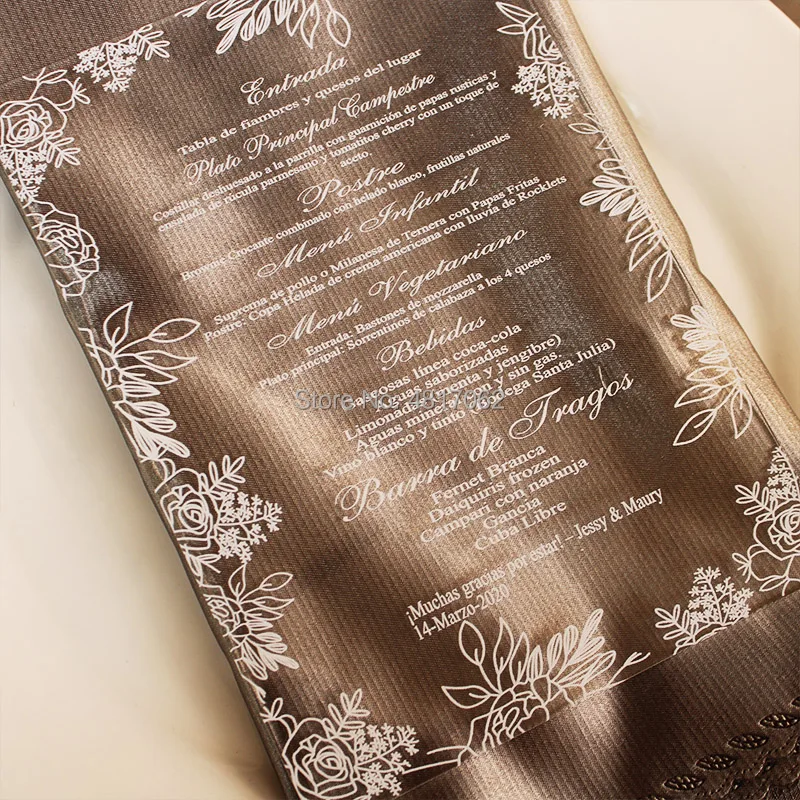 Entrada
Tabla de fiambres y quesos del lugar
Plato Principal Campestre
Costillar deshuesado a la parrilla con guarnición de papas rusticas y
ensalada de rúcula parmesano y tomatitos cherry con un toque de
aceto.
Postre
Brownie Crocante combinado con helado blanco, frutillas naturales
Menú Infantil
Suprema de pollo o Milanesa de Ternera con Papas Fritas
Postre: Copa Helada de crema americana con lluvia de Rocklets
Menú Vegetariano
Entrada: Bastones de mozzarella
Plato principal: Sorrentinos de calabaza a los 4 quesos
Bebidas
Gaseosas línea coca-cola
Aguas saborizadas
Limonada (menta y jengibre)
Aguas mineral con y sin gas.
Vino blanco y tinto Santa Julia)
Barra de Tragos
Fernet Branca
Daiquiris frozen
Campari con naranja
Gancia
Cuba Libre
¡Muchas gracias por estar! – Jessy & Maury
14-Marzo-2020
Store No: